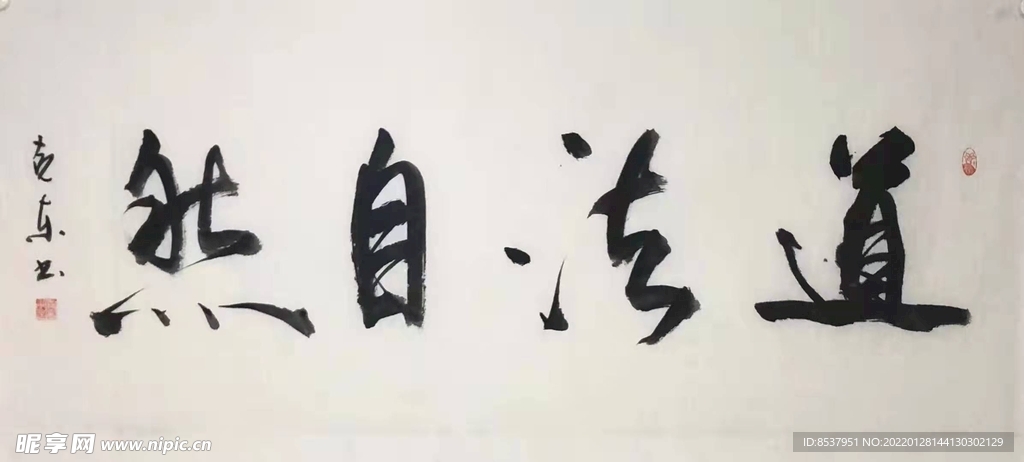 道法自然
克东书
昵享网 www.nipic.cn
ID:8537951 NO:20220128144130302129